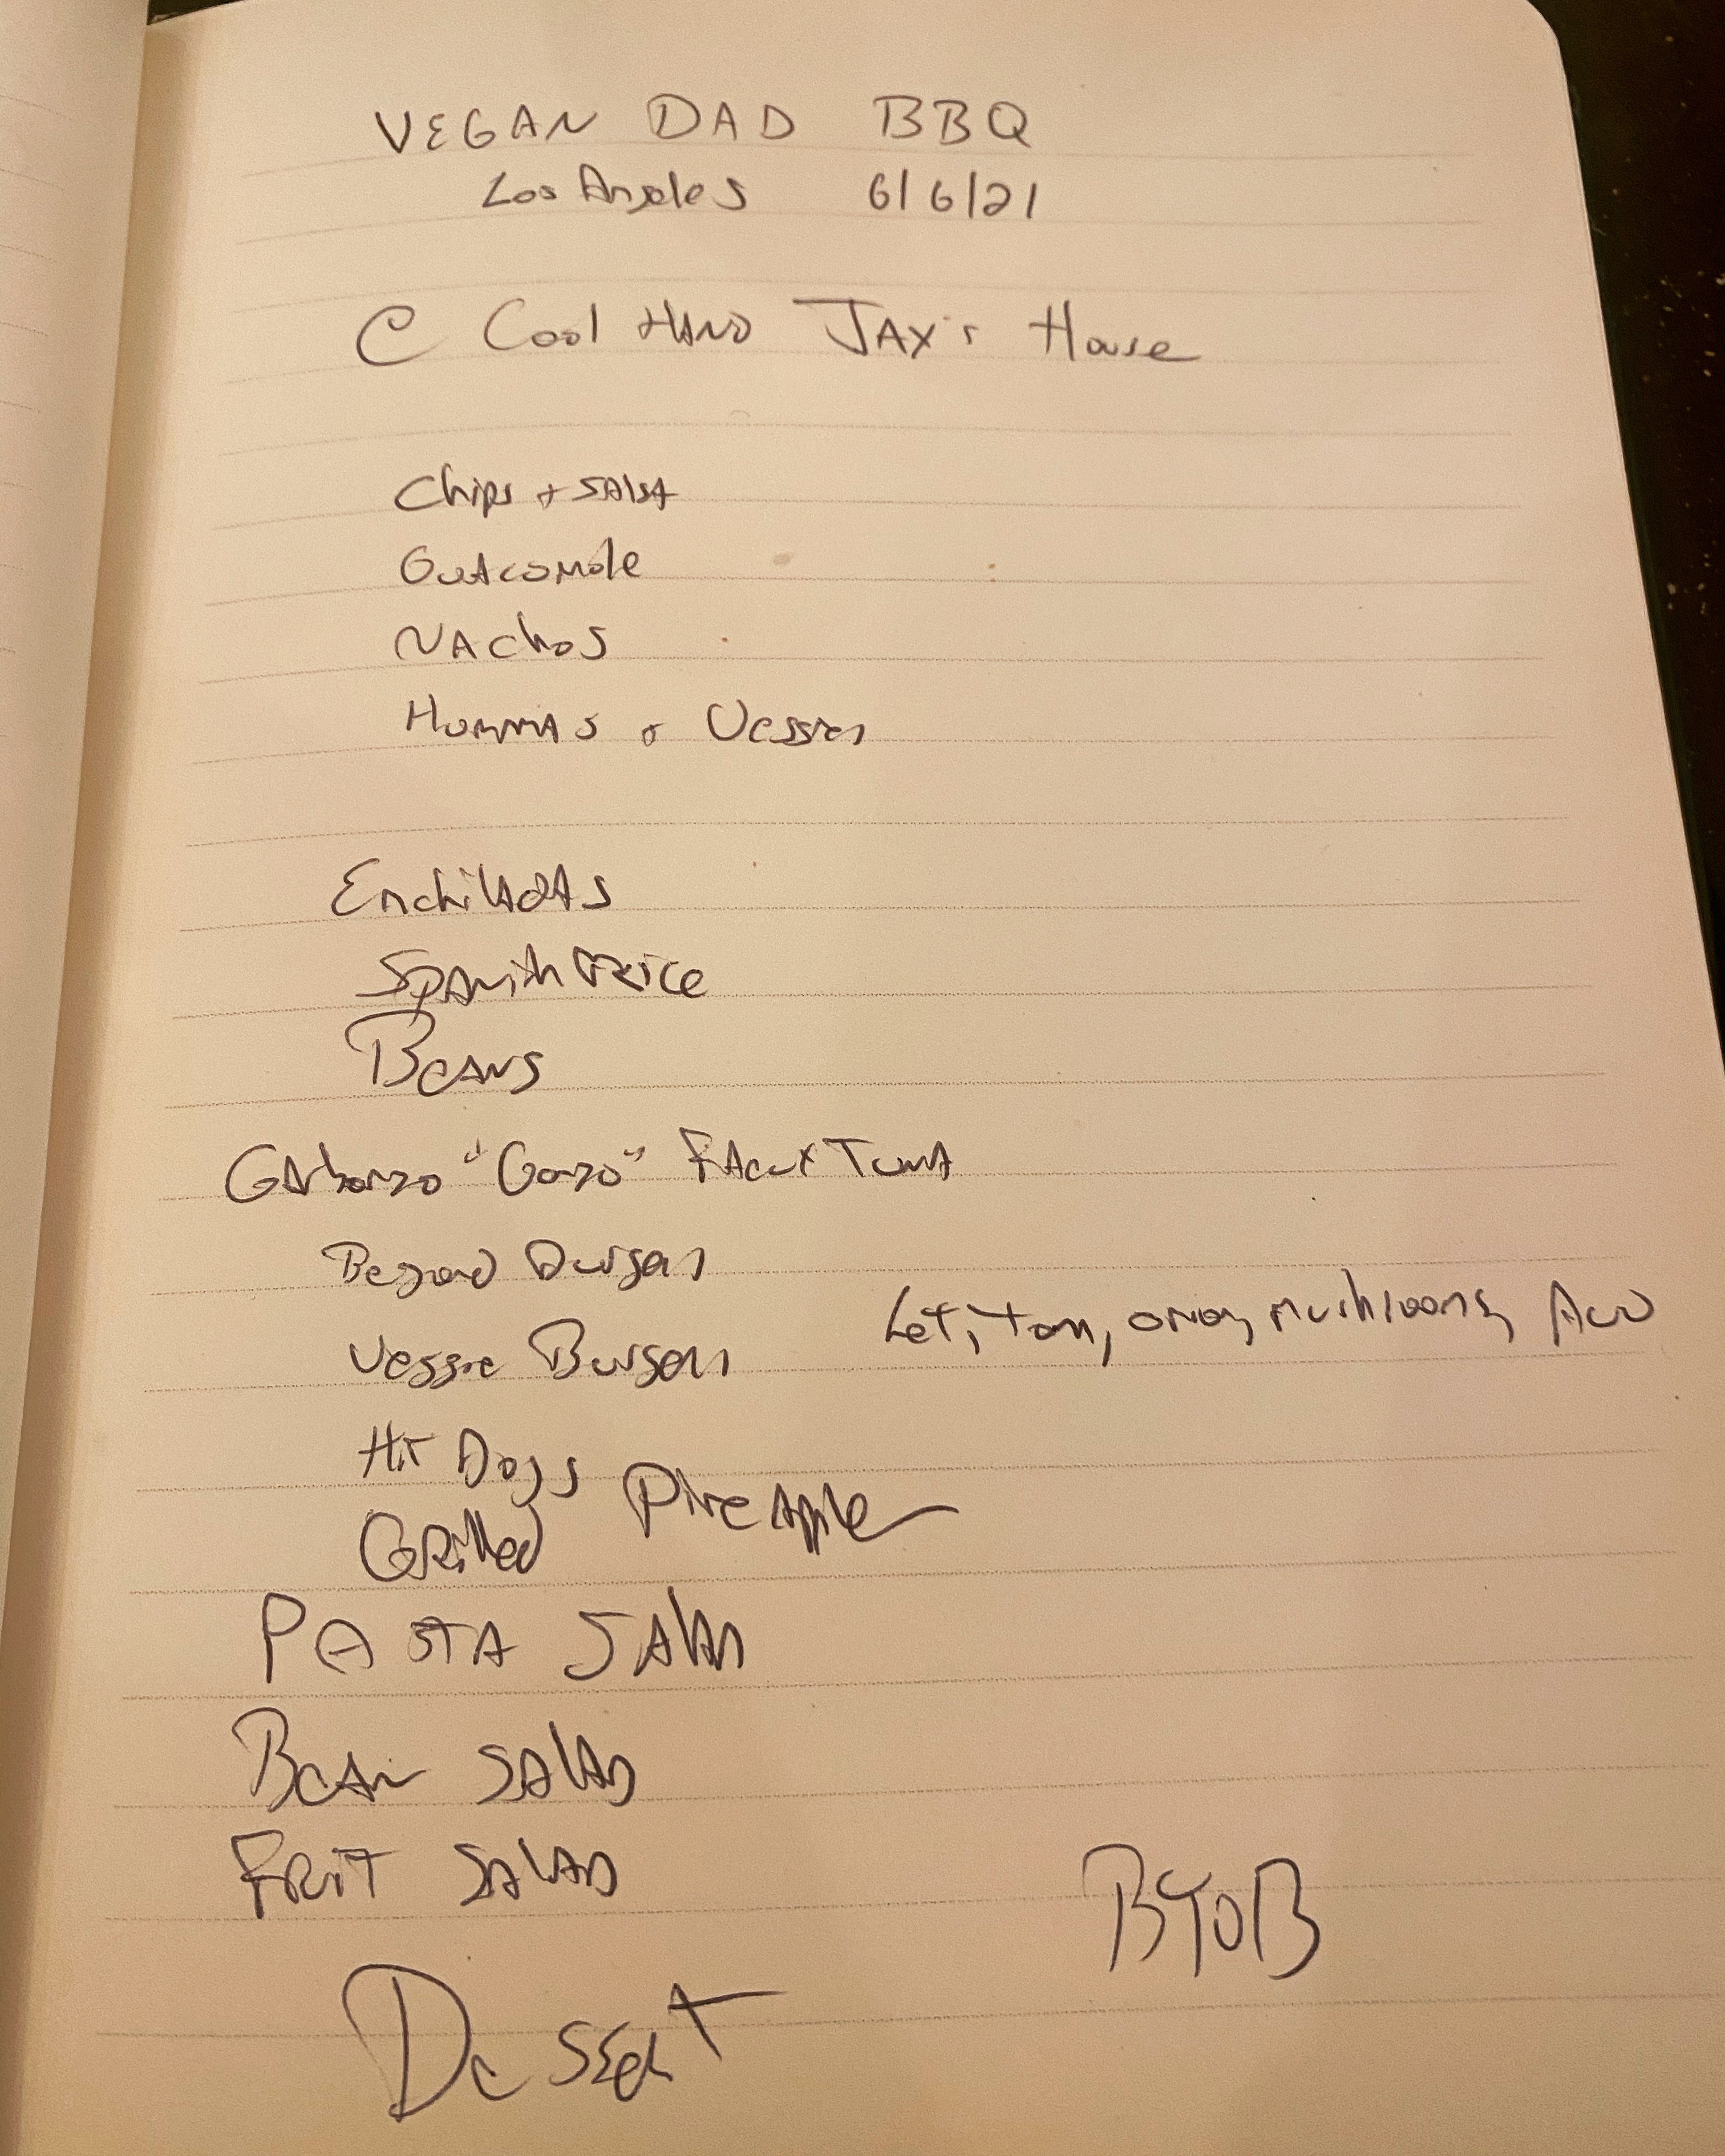 VEGAN DAD BBQ
Los Angeles 6/6/21
@ Cool HAND JAX's House
Chips + SAlsA
GuAcomole
NAchos
HummAs + Veggies
EnchilAdAs
SpAnish Rice
BeANS
GArbonzo "Gonzo" FAux TunA
Beyond Burgers
Veggie Burgers
Let, tom, onion, mushrooms, Avo
Hot Dogs
GRilled PineApple
PASTA SAlAD
BeAn SAlAD
FRuiT SAlAD
BYOB
DeSSERT